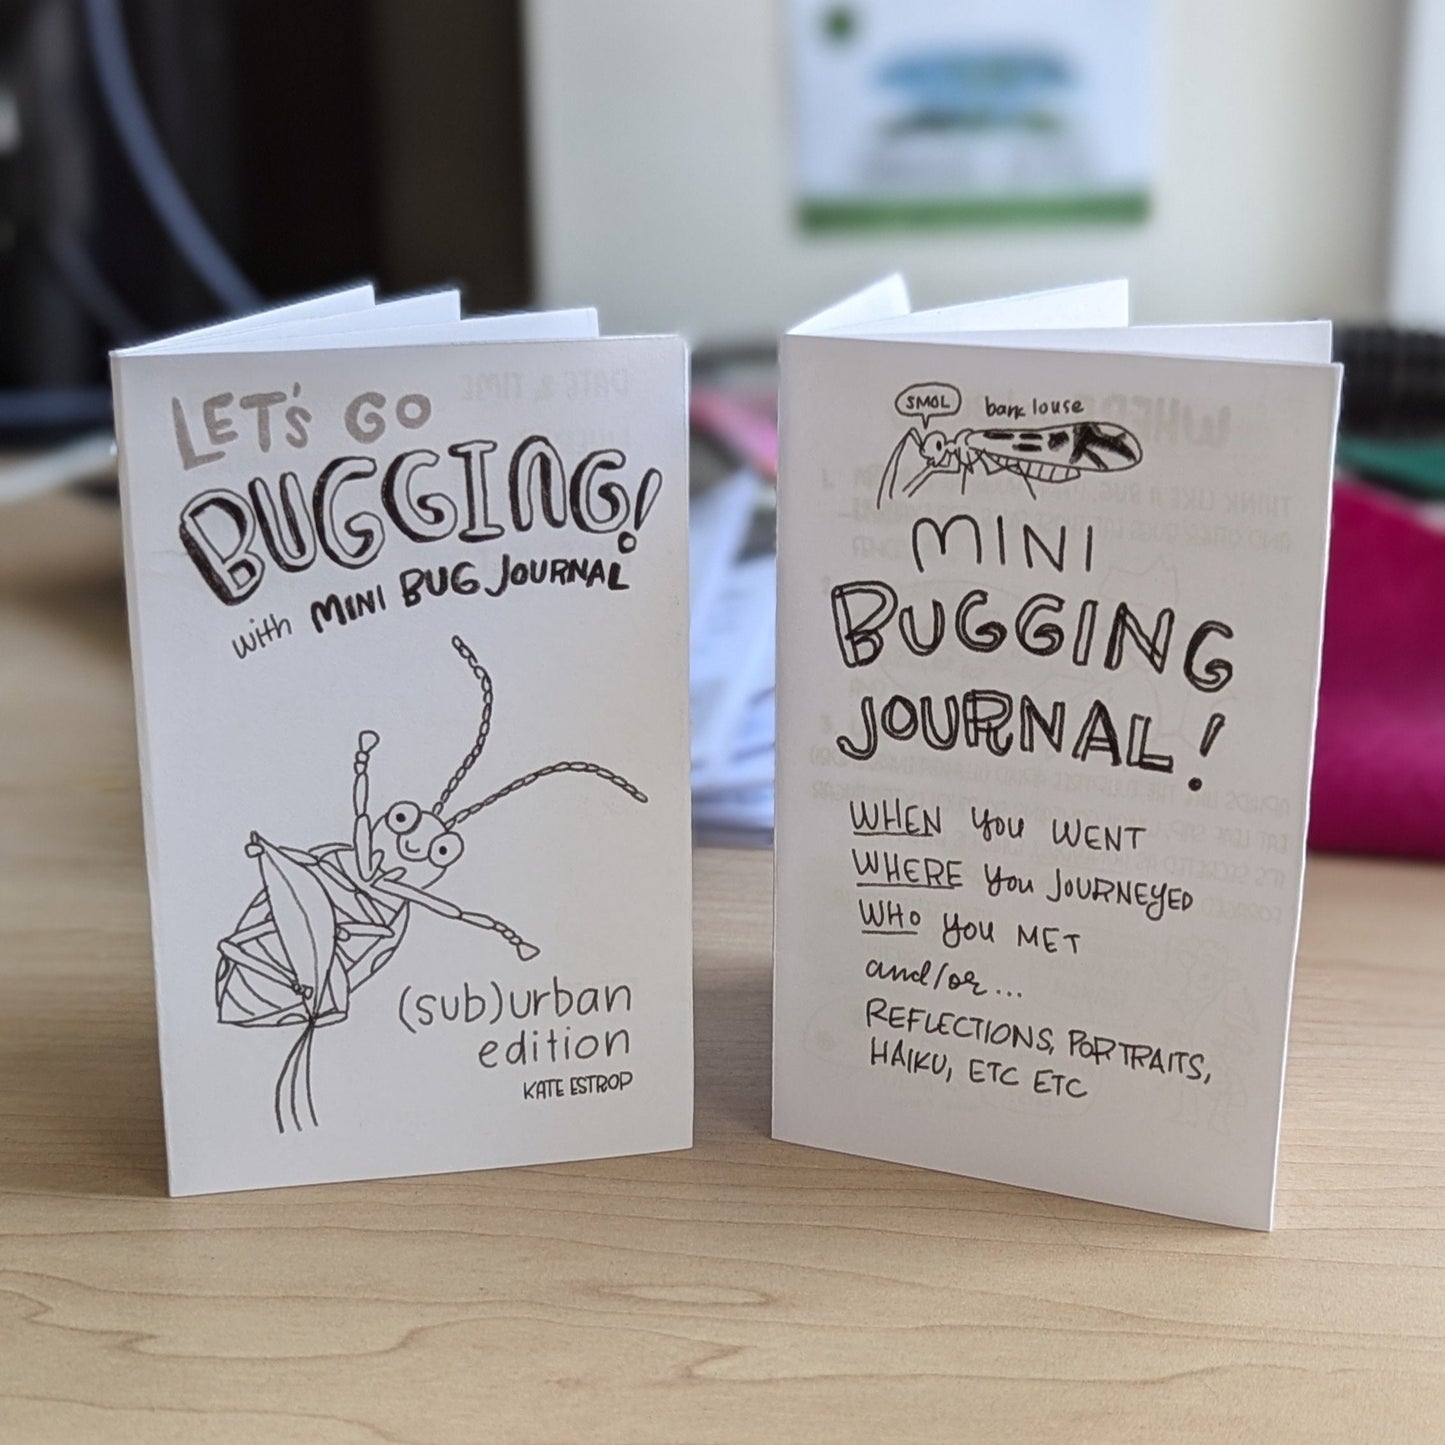 LET'S GO
BUGGING!
with MINI BUG JOURNAL
(sub)urban
edition
KATE ESTROP
SMOL
bark louse
MINI
BUGGING
JOURNAL!
WHEN you WENT
WHERE you JOURNEYED
WHO you MET
and/or...
REFLECTIONS, PORTRAITS,
HAIKU, ETC ETC
DATE & TIME
THINK LIKE A BUG,